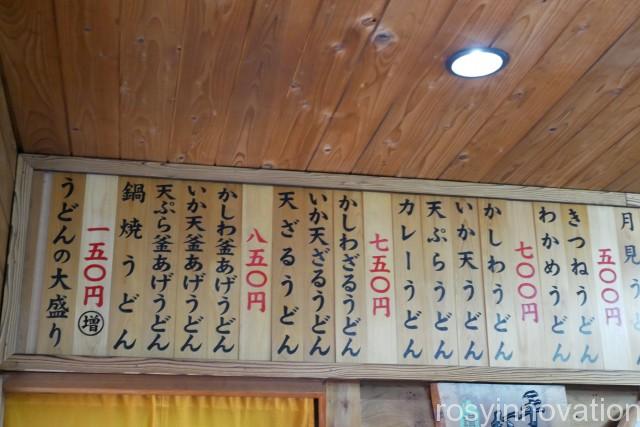 月見う
五〇〇円
きつねうどん
わかめうどん
七〇〇円
かしわうどん
いか天うどん
天ぷらうどん
カレーうどん
七五〇円
かしわざるうどん
いか天ざるうどん
天ざるうどん
八五〇円
かしわ釜あげうどん
いか天釜あげうどん
天ぷら釜あげうどん
鍋焼うどん
一五〇円増
うどんの大盛り
rosyinnovation